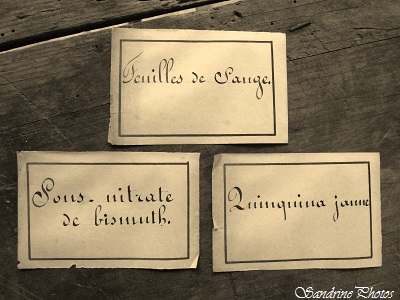 Feuilles de Sauge.
Sous-nitrate
de bismuth.
Quinquina jaune
Sandrine Photos